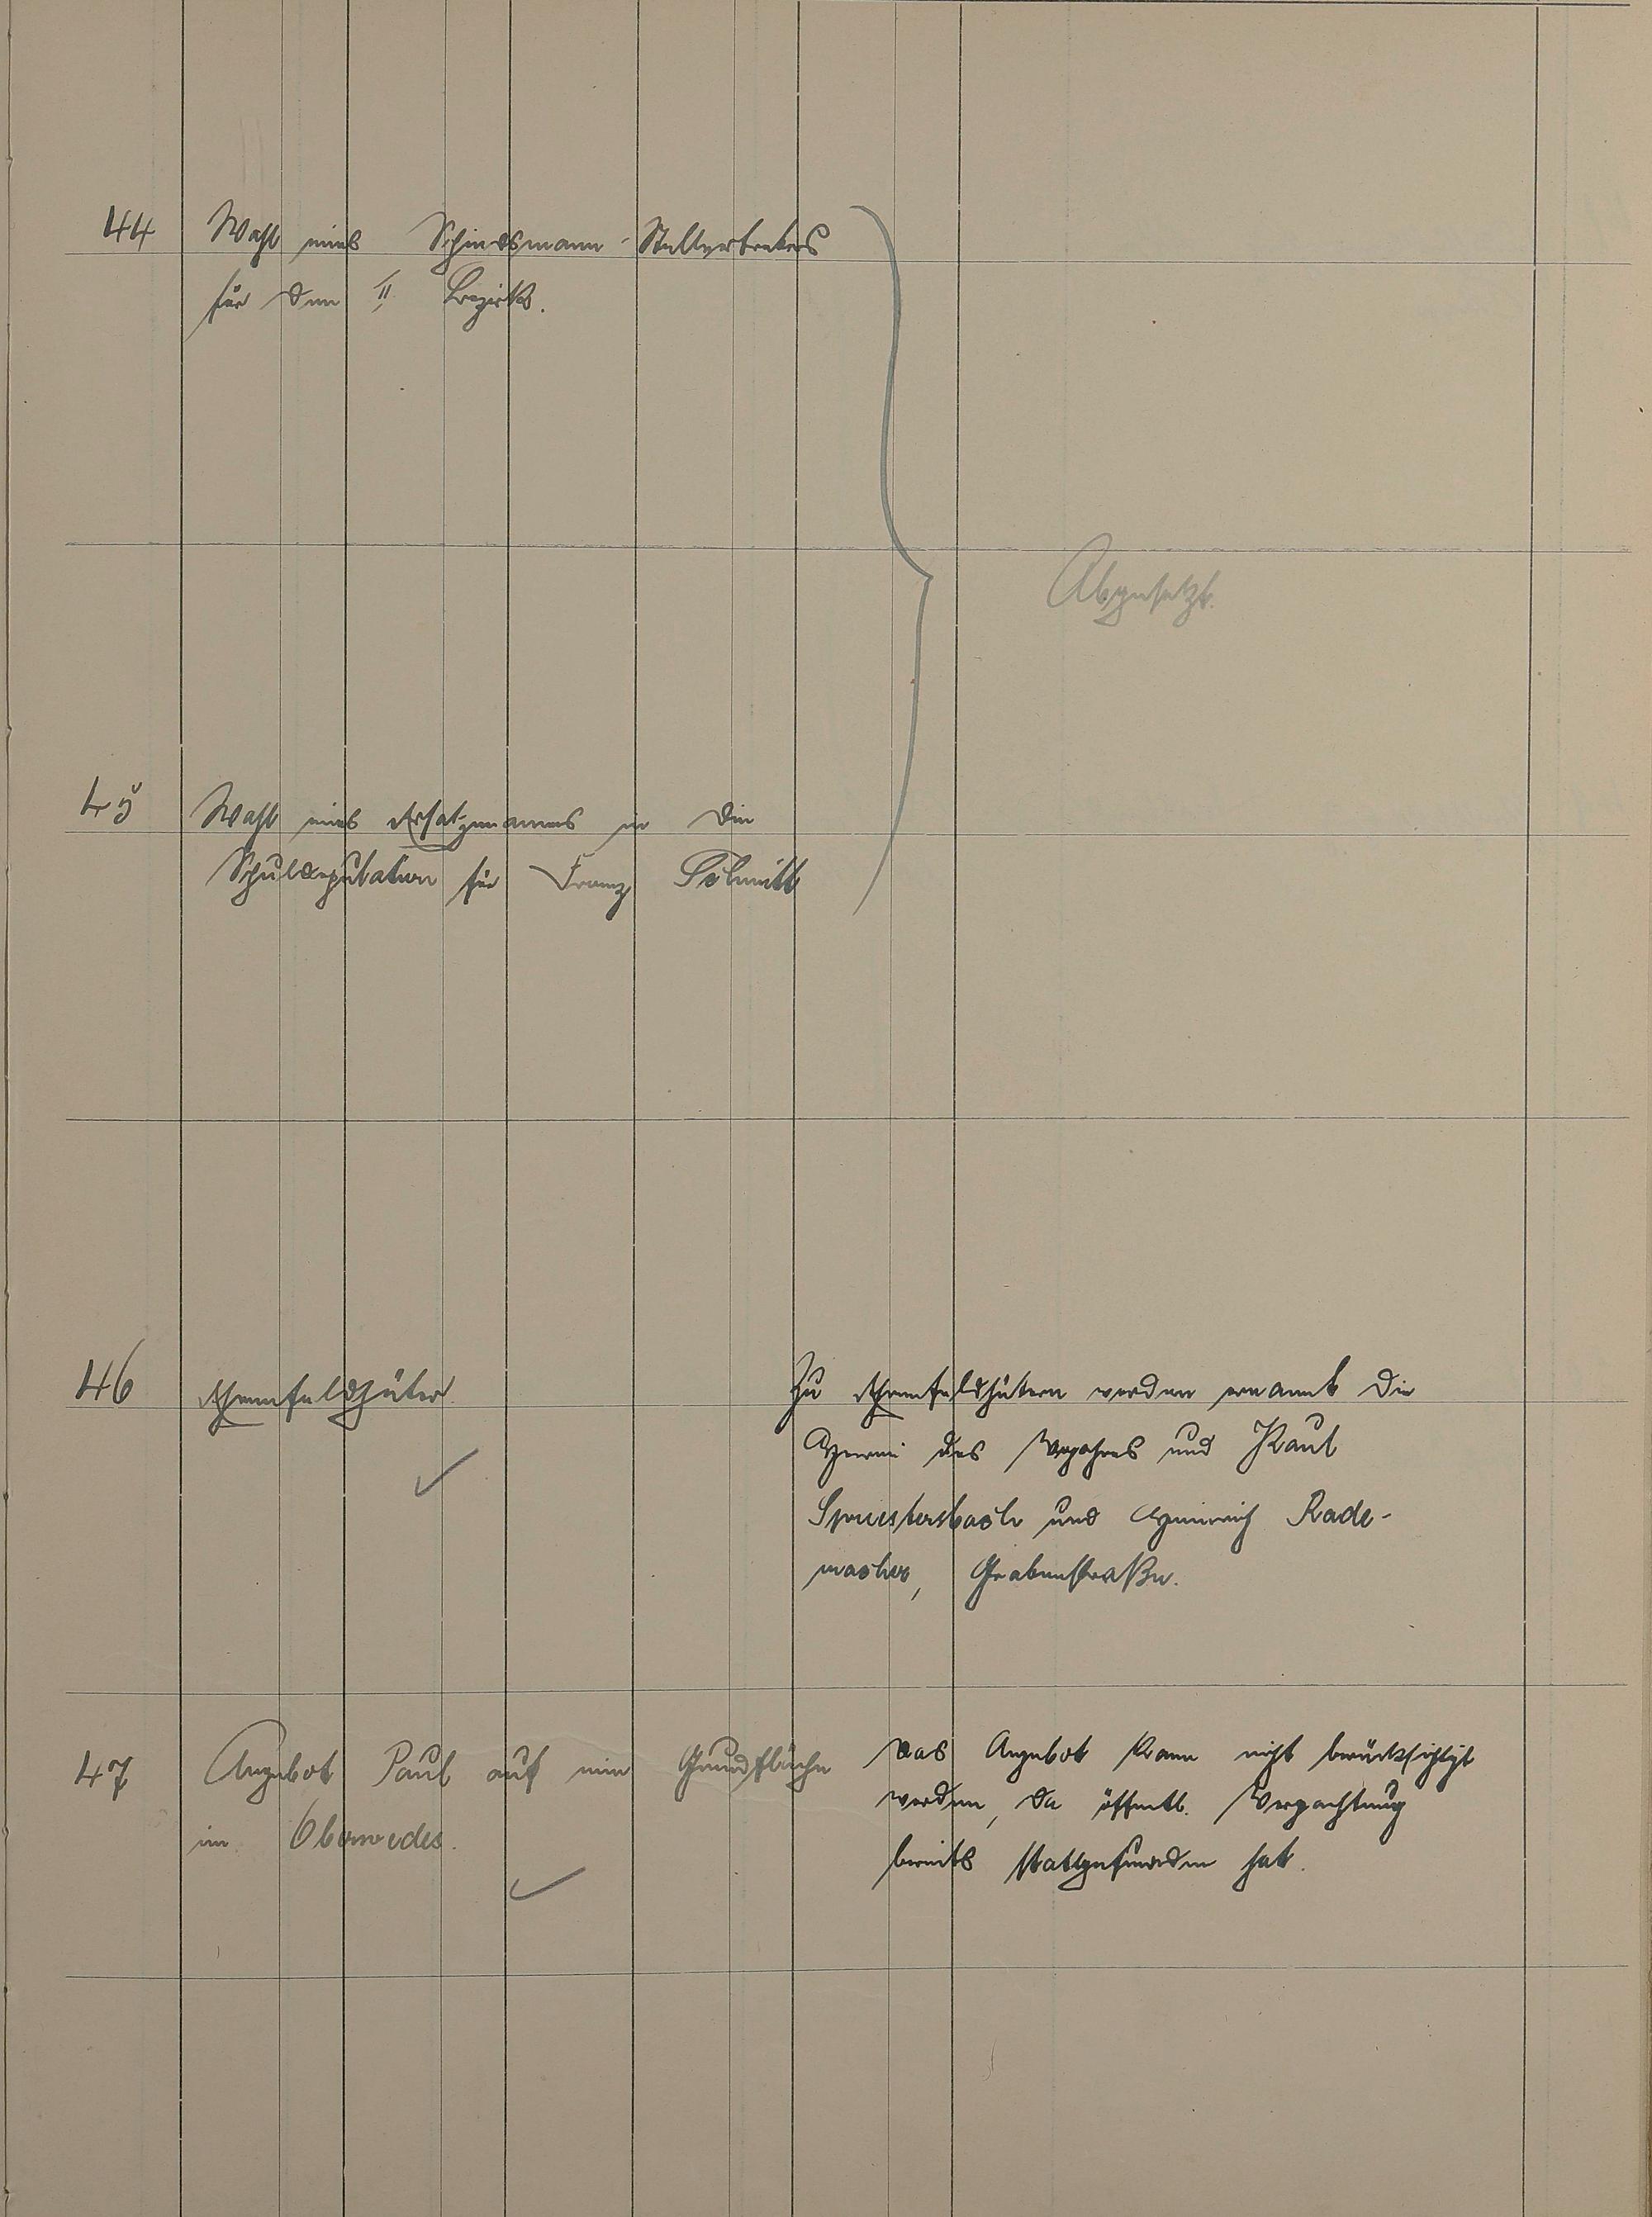 44 Wahl eines Schiedsmann-Stellvertreters
für den II. Bezirk.
Abgesetzt.
45 Wahl eines Ersatzmannes in die
Schuldeputation für Franz Schmitt
46 Ehrenfeldhüter.
Zu Ehrenfeldhütern werden ernannt die
des Vorjahres und Paul
und Heinrich Rade-
macher, Grabenstraße.
47 Angebot Paul auf eine Grundfläche
im
Das Angebot kann nicht berücksichtigt
werden, da öffentl. Verpachtung
bereits stattgefunden hat.